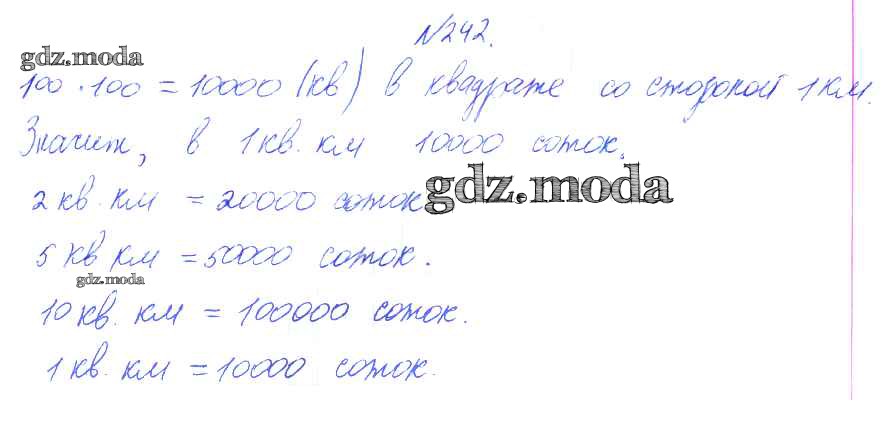 №242.
gdz.moda
100 · 100 = 10000 (кв) в квадрате со стороной 1 км.
Значит, в 1 кв. км 10000 соток.
2 кв. км = 20000 соток
gdz.moda
5 кв км = 50000 соток.
gdz.moda
10 кв. км = 100000 соток.
1 кв. км = 10000 соток.